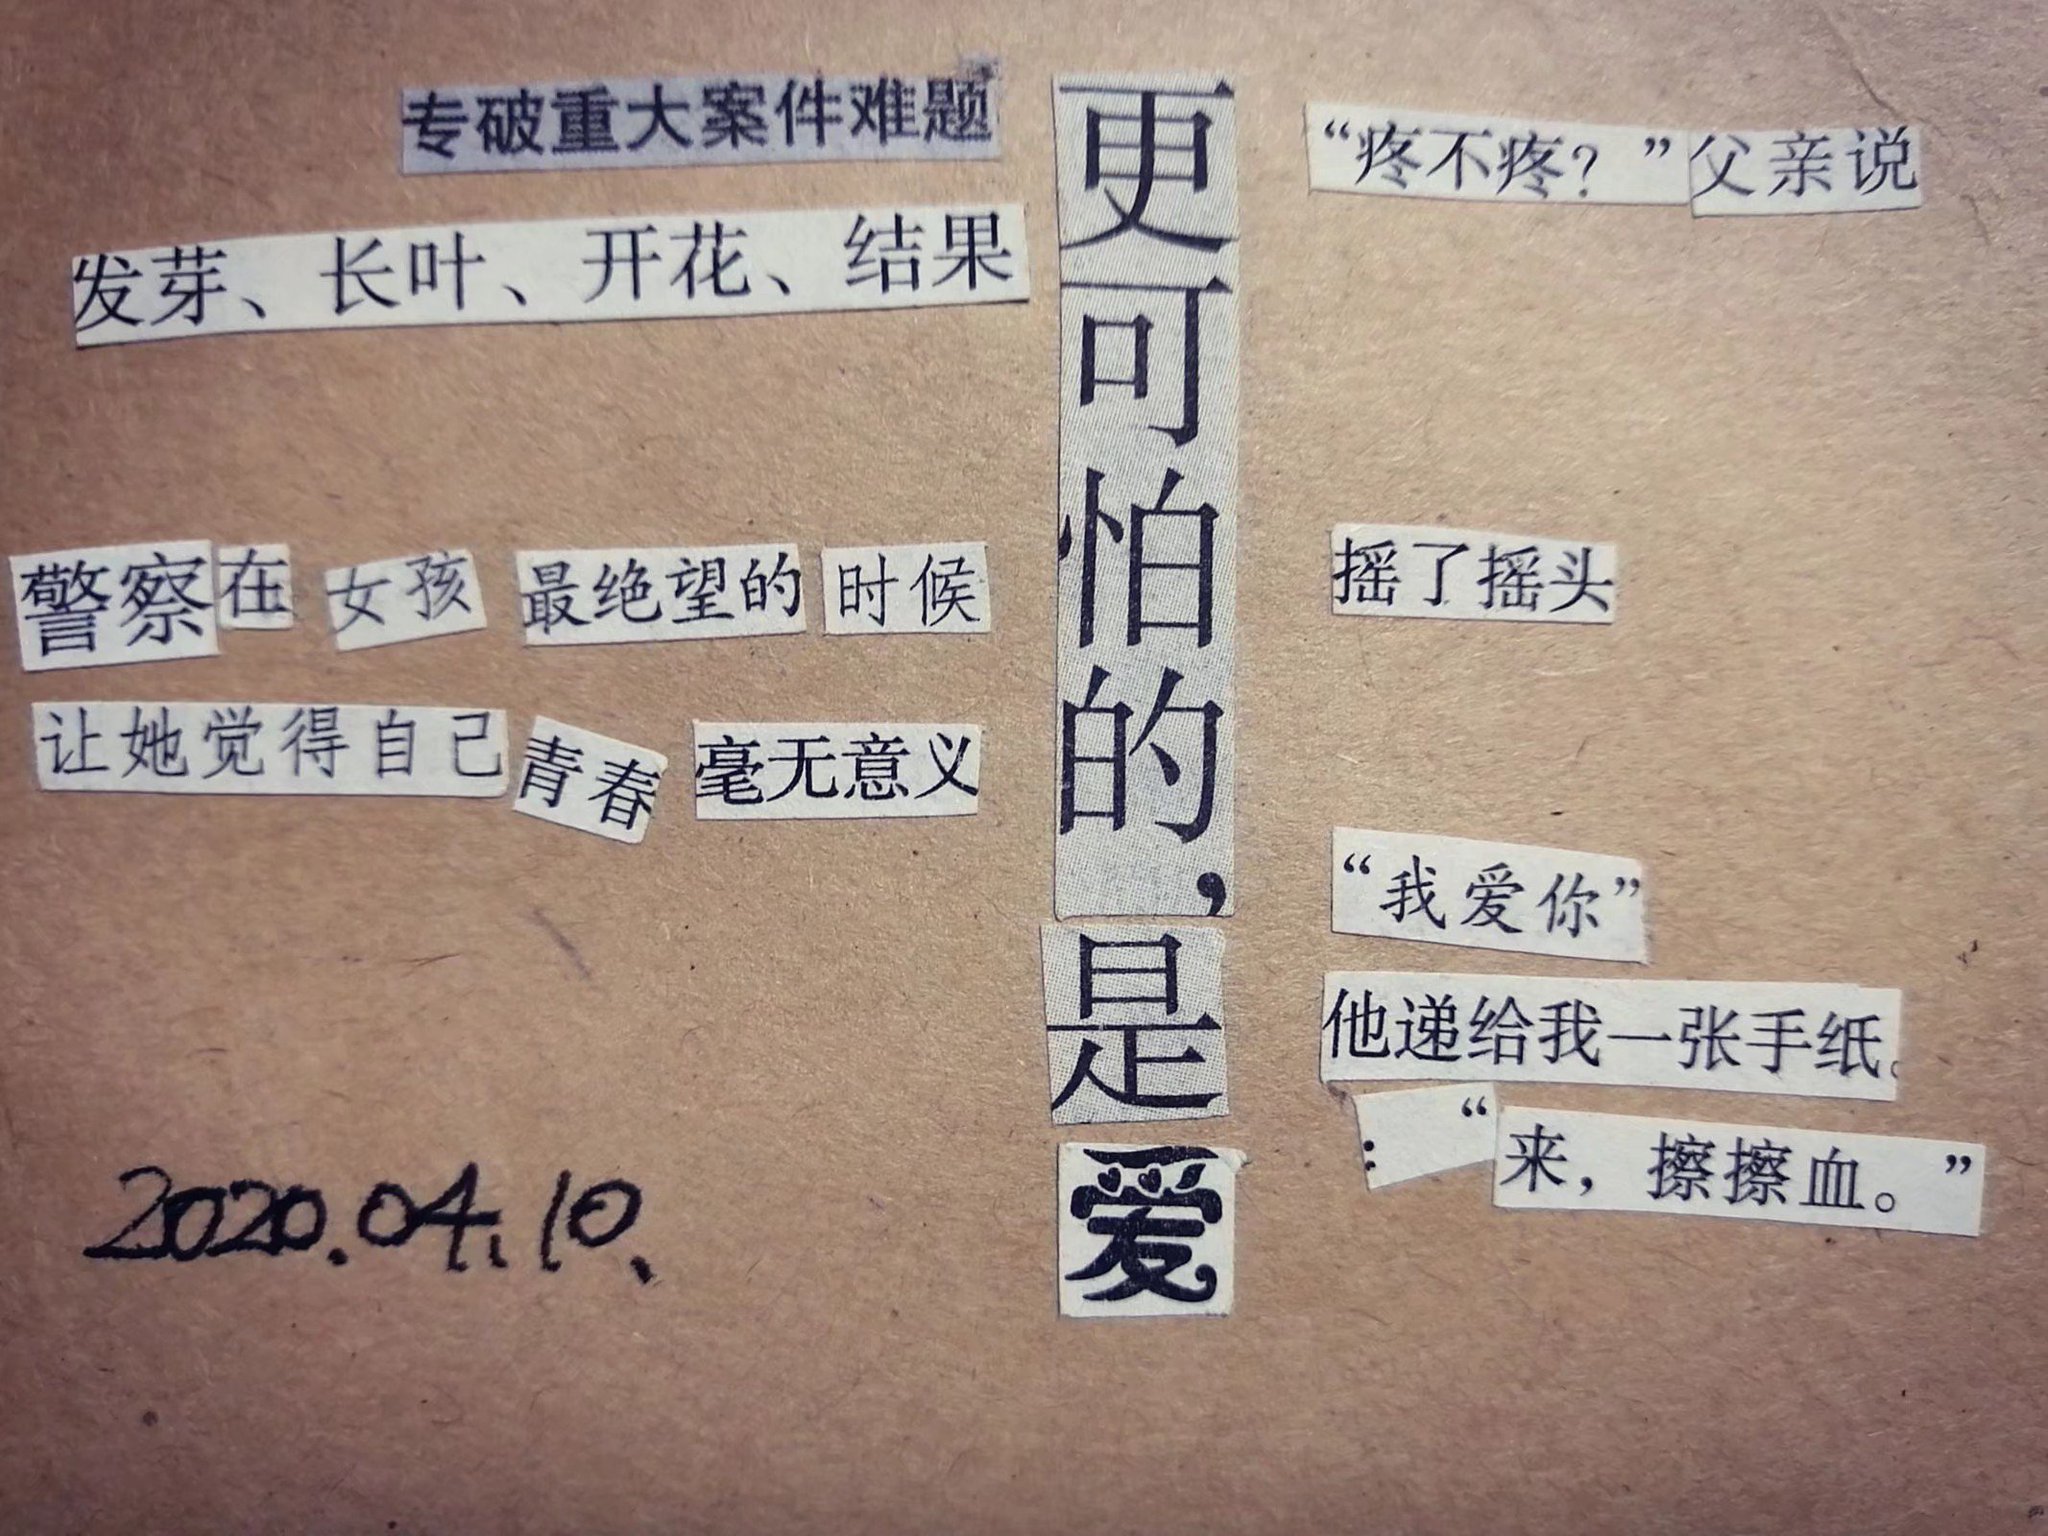 专破重大案件难题
发芽、长叶、开花、结果
警察在女孩最绝望的时候
让她觉得自己青春毫无意义
2020.04.10.
更可怕的，是爱
“疼不疼？”父亲说
摇了摇头
“我爱你”
他递给我一张手纸。
：“来，擦擦血。”